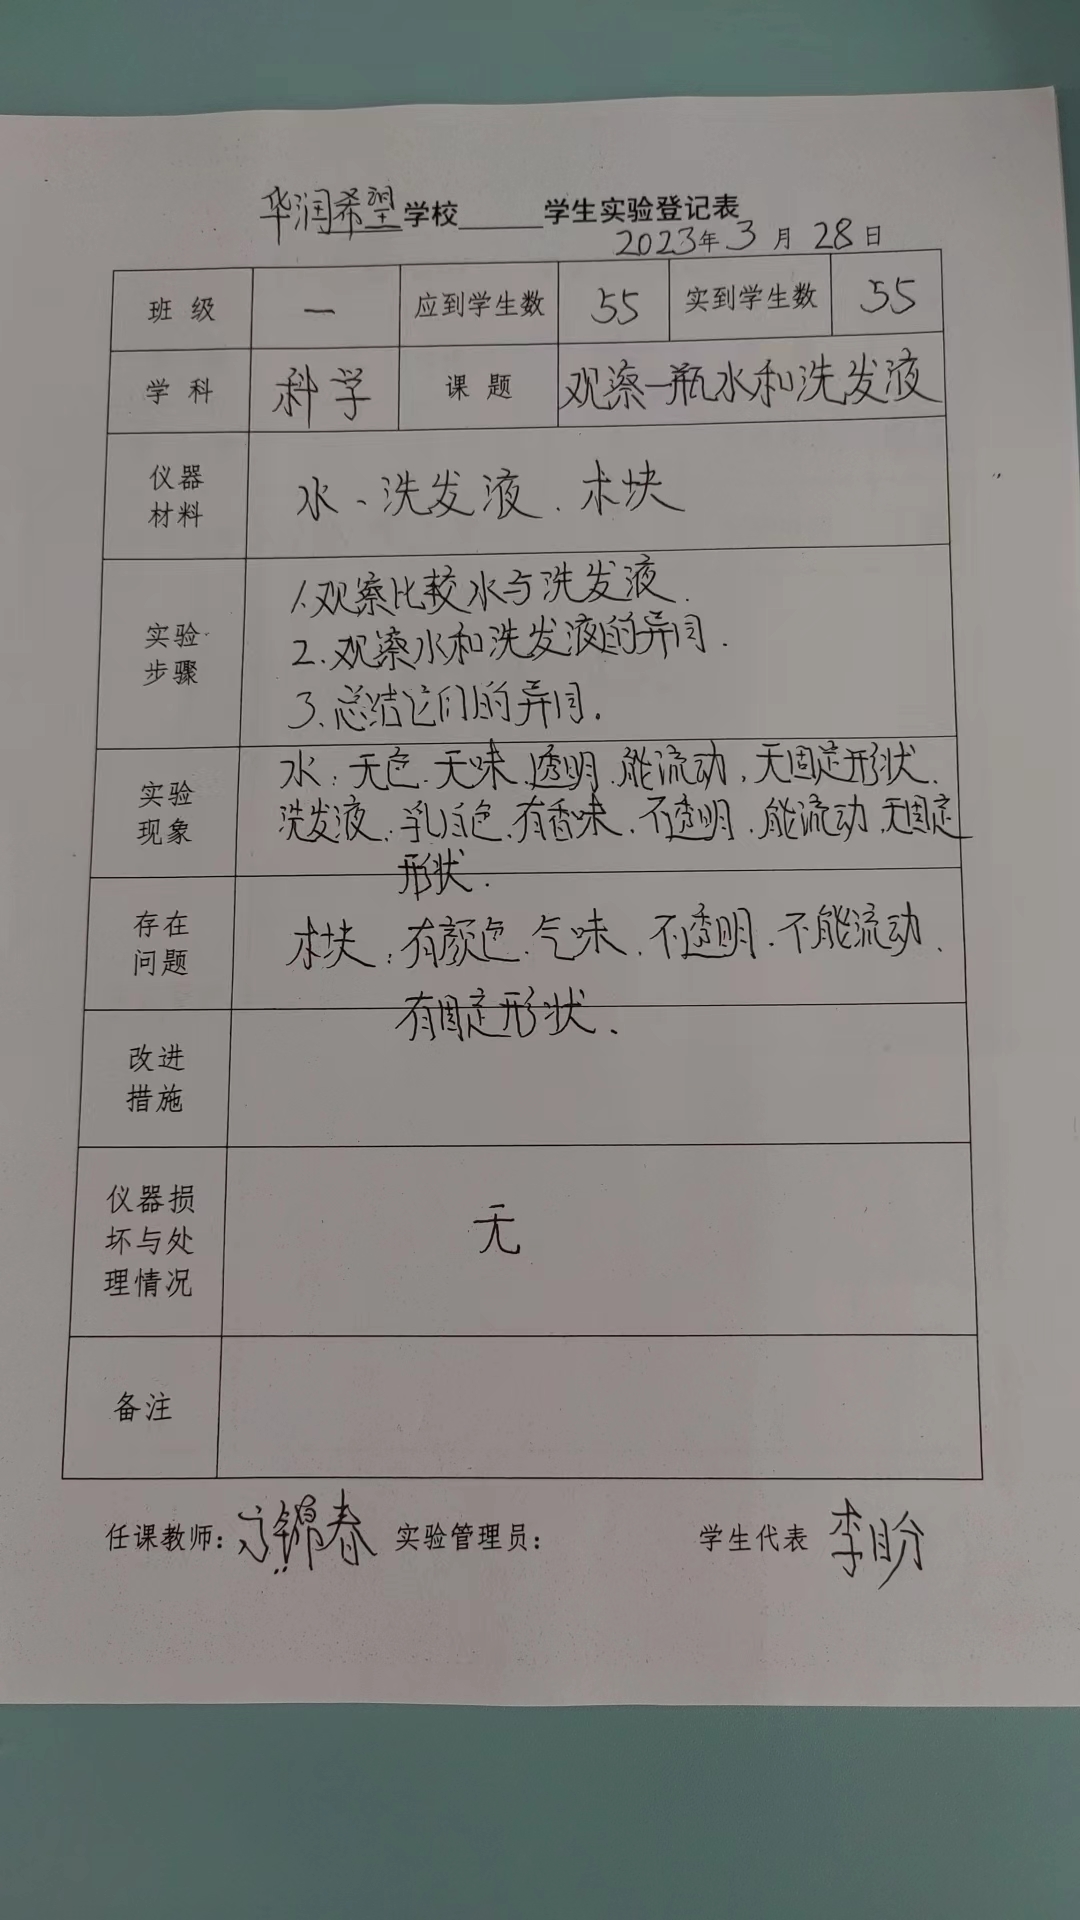 华润希望学校______学生实验登记表
2023年3月28日
班级 一 应到学生数 55 实到学生数 55
学科 科学 课题 观察一瓶水和洗发液
仪器
材料
水、洗发液、木块
实验
步骤
1.观察比较水与洗发液.
2.观察水和洗发液的异同.
3.总结它们的异同.
实验
现象
水:无色.无味.透明.能流动,无固定形状.
洗发液:乳白色.有香味.不透明.能流动.无固定
形状.
存在
问题
木块:有颜色.气味.不透明.不能流动.
有固定形状.
改进
措施
仪器损
坏与处
理情况
无
备注
任课教师: 锦春 实验管理员: 学生代表 李盼